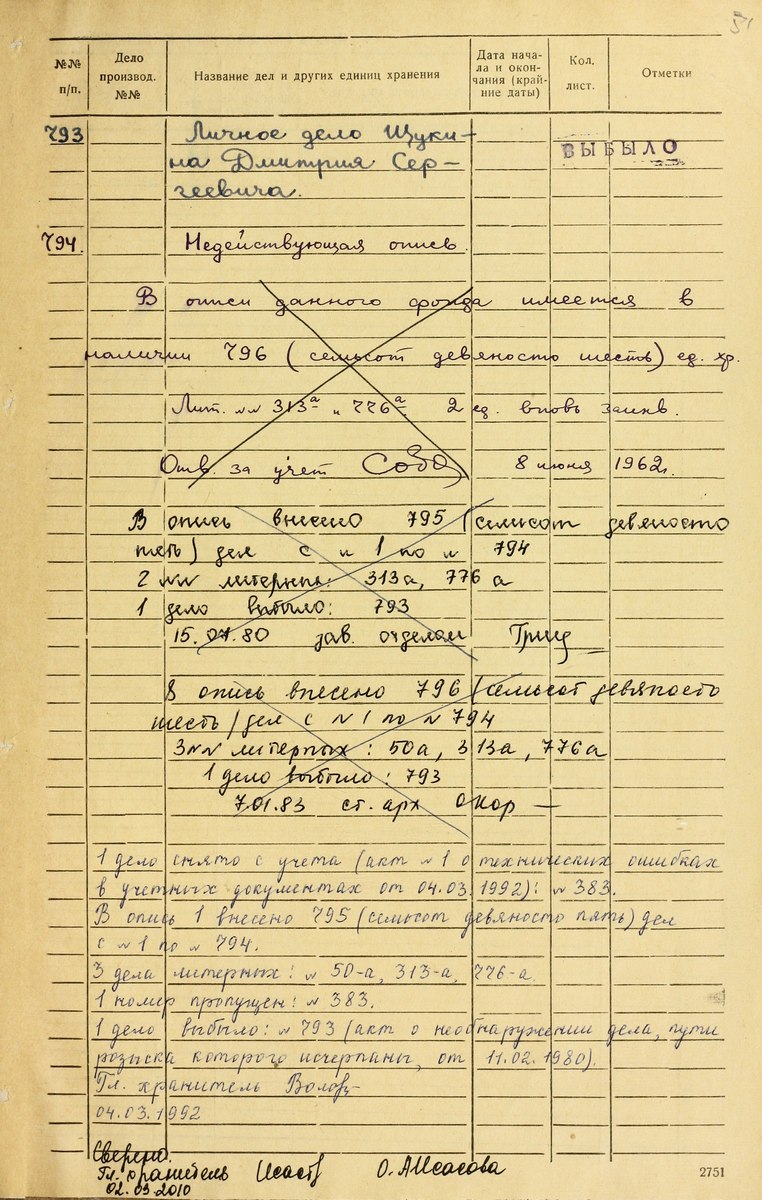 51
№№ п/п.
Дело производ. №№
Название дел и других единиц хранения
Дата нача-
ла и окон-
чания (край-
ние даты)
Кол. лист.
Отметки
793 Личное дело Щуки- ВЫБЫЛО
на Дмитрия Сер-
геевича.
794. Недействующая опись.
В описи данного фонда имеется в
наличии 796 (семьсот девяносто шесть) ед. хр.
Лит. №№ 313а и 776а 2 ед. вновь заинв.
Отв. за учет 8 июня 1962г.
В опись внесено 795 (семьсот девяносто
пять) дел с № 1 по № 794
2 №№ литерных: 313а, 776а
1 дело выбыло: 793
15.01.80 зав. отделом
В опись внесено 796 (семьсот девяносто
шесть) дел с №1 по №794
3 №№ литерных: 50а, 313а, 776а
1 дело выбыло: 793
7.01.83 ст. арх
1 дело снято с учета (акт №1 о технических ошибках
в учетных документах от 04.03.1992): №383.
В опись 1 внесено 795 (семьсот девяносто пять) дел
с №1 по №794.
3 дела литерных: №50-а, 313-а, 776-а.
1 номер пропущен: №383.
1 дело выбыло: №793 (акт о необнаружении дела, пути
розыска которого исчерпаны, от 11.02.1980).
Гл. хранитель
04.03.1992
Сверено.
Гл. хранитель О. А. Исасова
02.03.2010
2751